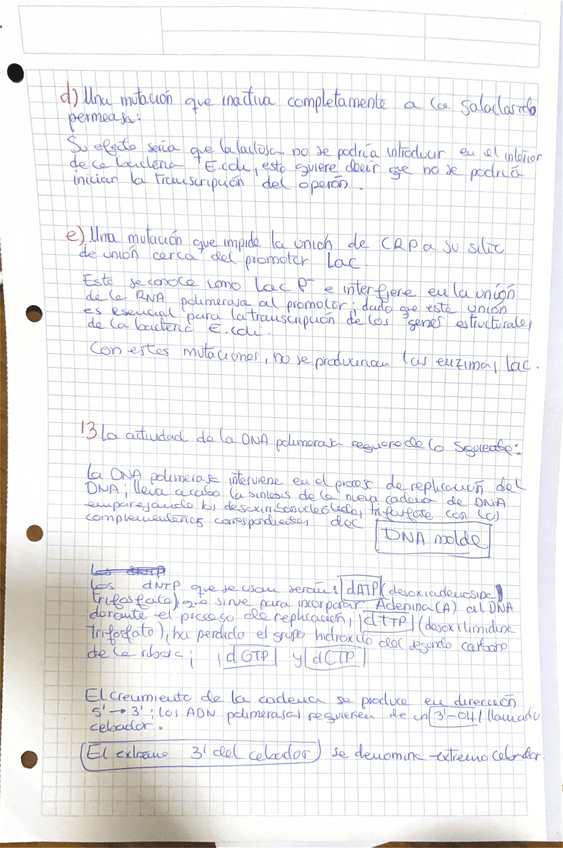 d) Una mutación que inactiva completamente a la galactosido
permeasa:
Su efecto sería que la lactosa no se podría introducir en el interior
de la bacteria E.coli, esto quiere decir que no se podría
iniciar la transcripción del operón.
e) Una mutación que impide la unión de CRP a su sitio
de unión cerca del promotor Lac
Este se conoce como Lac P⁻ e interfiere en la unión
de la RNA polimerasa al promotor, dado que esta unión
es esencial para la transcripción de los genes estructurales
de la bacteria E.coli.
Con estas mutaciones, no se producirían las enzimas lac.
13. La actividad de la DNA polimerasa requiere de lo siguiente:
La DNA polimerasa interviene en el proceso de replicación del
DNA; lleva a cabo la síntesis de la nueva cadena de DNA
emparejando los desoxirribonucleótidos trifosfato con los
complementarios correspondientes del DNA molde
Los dNTP que se usan serían: dATP (desoxiadenosina
trifosfato), que sirve para incorporar Adenina (A) al DNA
durante el proceso de replicación; dTTP (desoxitimidina
trifosfato), ha perdido el grupo hidroxilo del segundo carbono
de la ribosa; dGTP y dCTP
El crecimiento de la cadena se produce en dirección
5' → 3'; las ADN polimerasas requieren de un 3'-OH llamado
cebador.
El extremo 3' del cebador se denomina extremo cebador